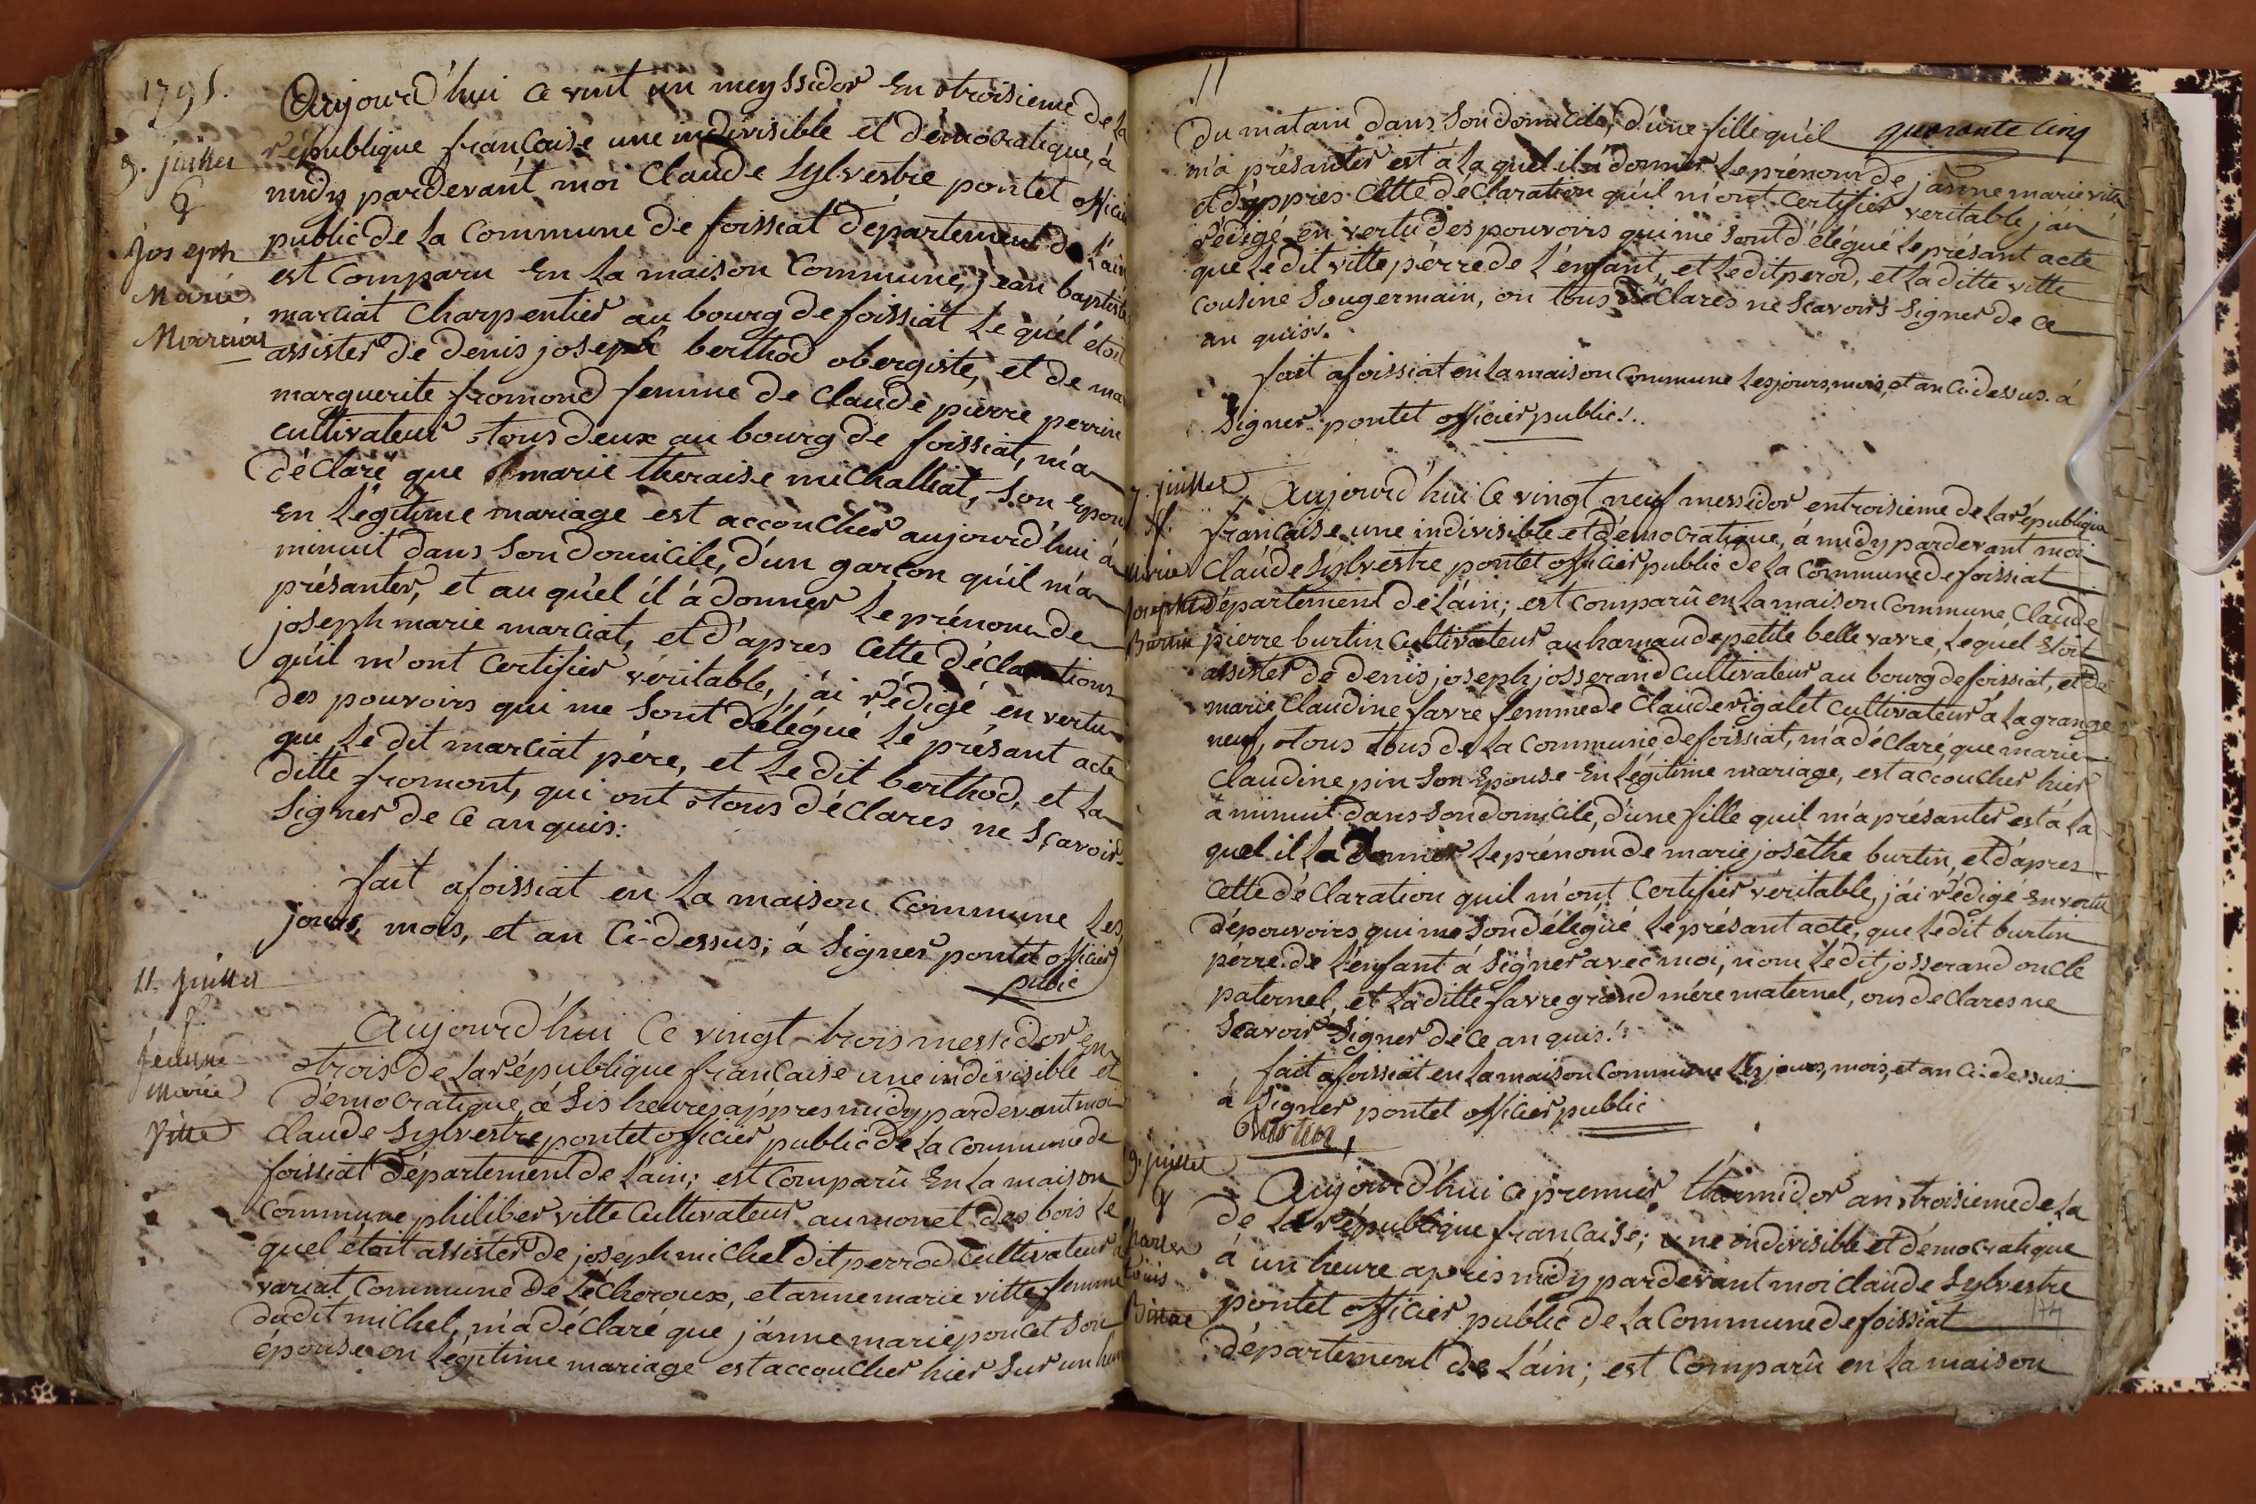 1795.
9. juillet
G
joseph
Marie
Marciat
Aujourd'hui ce vint un meyssidor En troisieme de La
république française une indivisible et démocratique, á
midy pardevant moi Claude Sylvestre pontet officier
public de La Commune de foissiat département de L'ain
est Comparu En La maison Commune, jean baptiste
marciat Charpentier au bourg de foissiat Le quél étoit
assister de denis joseph berthod obergiste, et de ma
marguerite fromond femme de Claude pierre perrin
cultivateur tous deux au bourg de foissiat, m'a
déclaré que marie theraise michalliat, son epouse
En Légitime mariage est accoucher aujourd'hui á
minuit dans son domicile, d'un garcon qu'il m'a
présanter, et au quél il á donner Le prénom de
joseph marie marciat, et d'apres Cette déclarations
qu'il m'ont Certifier véritable, j'ai rédigé en vertu
des pouvoirs qui me sont délégué Le présant acte
que Le dit marciat pére, et Le dit berthod, et La
ditte fromont, qui ont tous déclares ne sçavoir
signer de ce an quis:
fait a foissiat en La maison Commune Les
jours, mois, et an Ci-dessus; á signer pontet officier
public
11. juillet
f.
jeanne
Marie
Vitte
Aujourd'hui Ce vingt trois messidor en
trois de La république française une indivisible et
démocratique, á sis heures appres midy pardevant moi
Claude Sylvestre pontet officier public de La Commune de
foissiat département de L'ain; est Comparu En La maison
Commune philiber vitte Cultivateur au monet des bois Le
quel étoit assister de joseph michel dit perrod Cultivateur á
variat Commune de Lécheroux, et anne marie vitte femme
dudit michel, m'a déclaré que jánne marie poncet son
épouse en Légitime mariage est accoucher hier sur un heur
11
quarante cinq
du matain dans son domicile, d'une fille qu'il
m'a présanter est á La quel il á donner Le prénom de jánne marie vitte
et d'appres Cette declaration qu'il m'ont Certifier veritable j'ai
rédigé en vertu des pouvoirs qui me sont délégué Le présant acte
que Le dit vitte pérre de L'enfant, et Le dit perod, et La ditte vitte
cousine sougermain, on tous déclarés ne scavoirs signer de ce
an quis.
fait a foissiat en La maison Commune Les jours, mois, et an Ci-dessus. á
signer pontet officier public.
17. juillet
f.
Marie
Josephte
Burtin
Aujourd'hui Ce vingt neuf messidor en troisieme de La république
française une indivisible et démocratique, á midy pardevant moi
Claude Sylvestre pontet officier public de La Commune de foissiat
département de L'ain; est Comparû en La maison Commune, Claude
pierre burtin Cultivateur au hamau de petite belle vavre, Le quel Etoit
assister de denis joseph josserand Cultivateur au bourg de foissiat, et de
marie Claudine favre femme de Claude rigalet Cultivateur á La grange
neuf, tous tous de La Commune de foissiat, m'a déclaré, que marie
Claudine pin son Epouse En Légitime mariage, est accoucher hier
á minuit dans son domicile, d'une fille qu'il m'a présanter est á La
quel il La donner Le prénom de marie joséthe burtin, et d'apres
Cette déclaration quil m'ont Certifier véritable, j'ai rédigé En vertu
dépouvoirs qui me son délégué Le présant acte, que Le dit burtin
pérre de L'enfant á signer avec moi, nom Lé dit josserand oncle
paternel, et La ditte favre grand mére maternel, ons declares ne
scavoir signer de ce an quis.
fait a foissiat en La maison Commune Les jours, mois, et an Ci-dessus
á signer pontet officier public
Burtin
19. juillet
G
Louis
Aujourd'hui Ce premier thermidor an troisieme de La
de La république française; une indivisible et démocratique
á un heure apres midy pardevant moi Claude Sylvestre
pontet officier public de La Commune de foissiat
département de L'ain; est Comparû en La maison